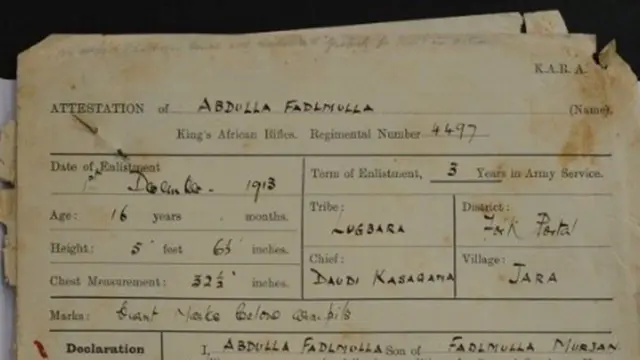 K.A.R.A.
ATTESTATION of ABDULLA FADLMULLA (Name).
King's African Rifles. Regimental Number 4497
Date of Enlistment
1st December 1913
Term of Enlistment, 3 Years in Army Service.
Age: 16 years months.
Tribe: LUGBARA
District: Fort Portal
Height: 5 feet 6½ inches.
Chief: DAUDI KASAGAMA
Village: JARA
Chest Measurement: 32½ inches.
Marks: before
Declaration
I, ABDULLA FADLMULLA Son of FADLMULLA MURJAN